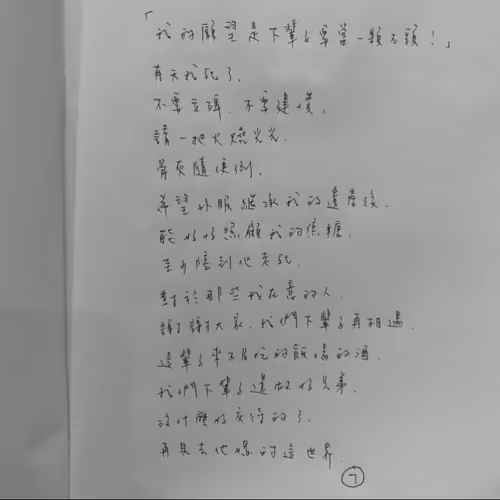 「我的願望是下輩子要當一顆石頭！」
有天我死了.
不要立碑.不要建墳.
請一把火燒光光.
骨灰隨便倒.
希望外服繼承我的遺產後.
能好好照顧我的焦糖.
至少陪到他老死.
對於那些我在意的人.
謝謝大家.我們下輩子再相遇.
這輩子來不及吃的飯喝的酒.
我們下輩子還做好兄弟.
沒什麼好交待的了.
再見去他媽的這世界.
7